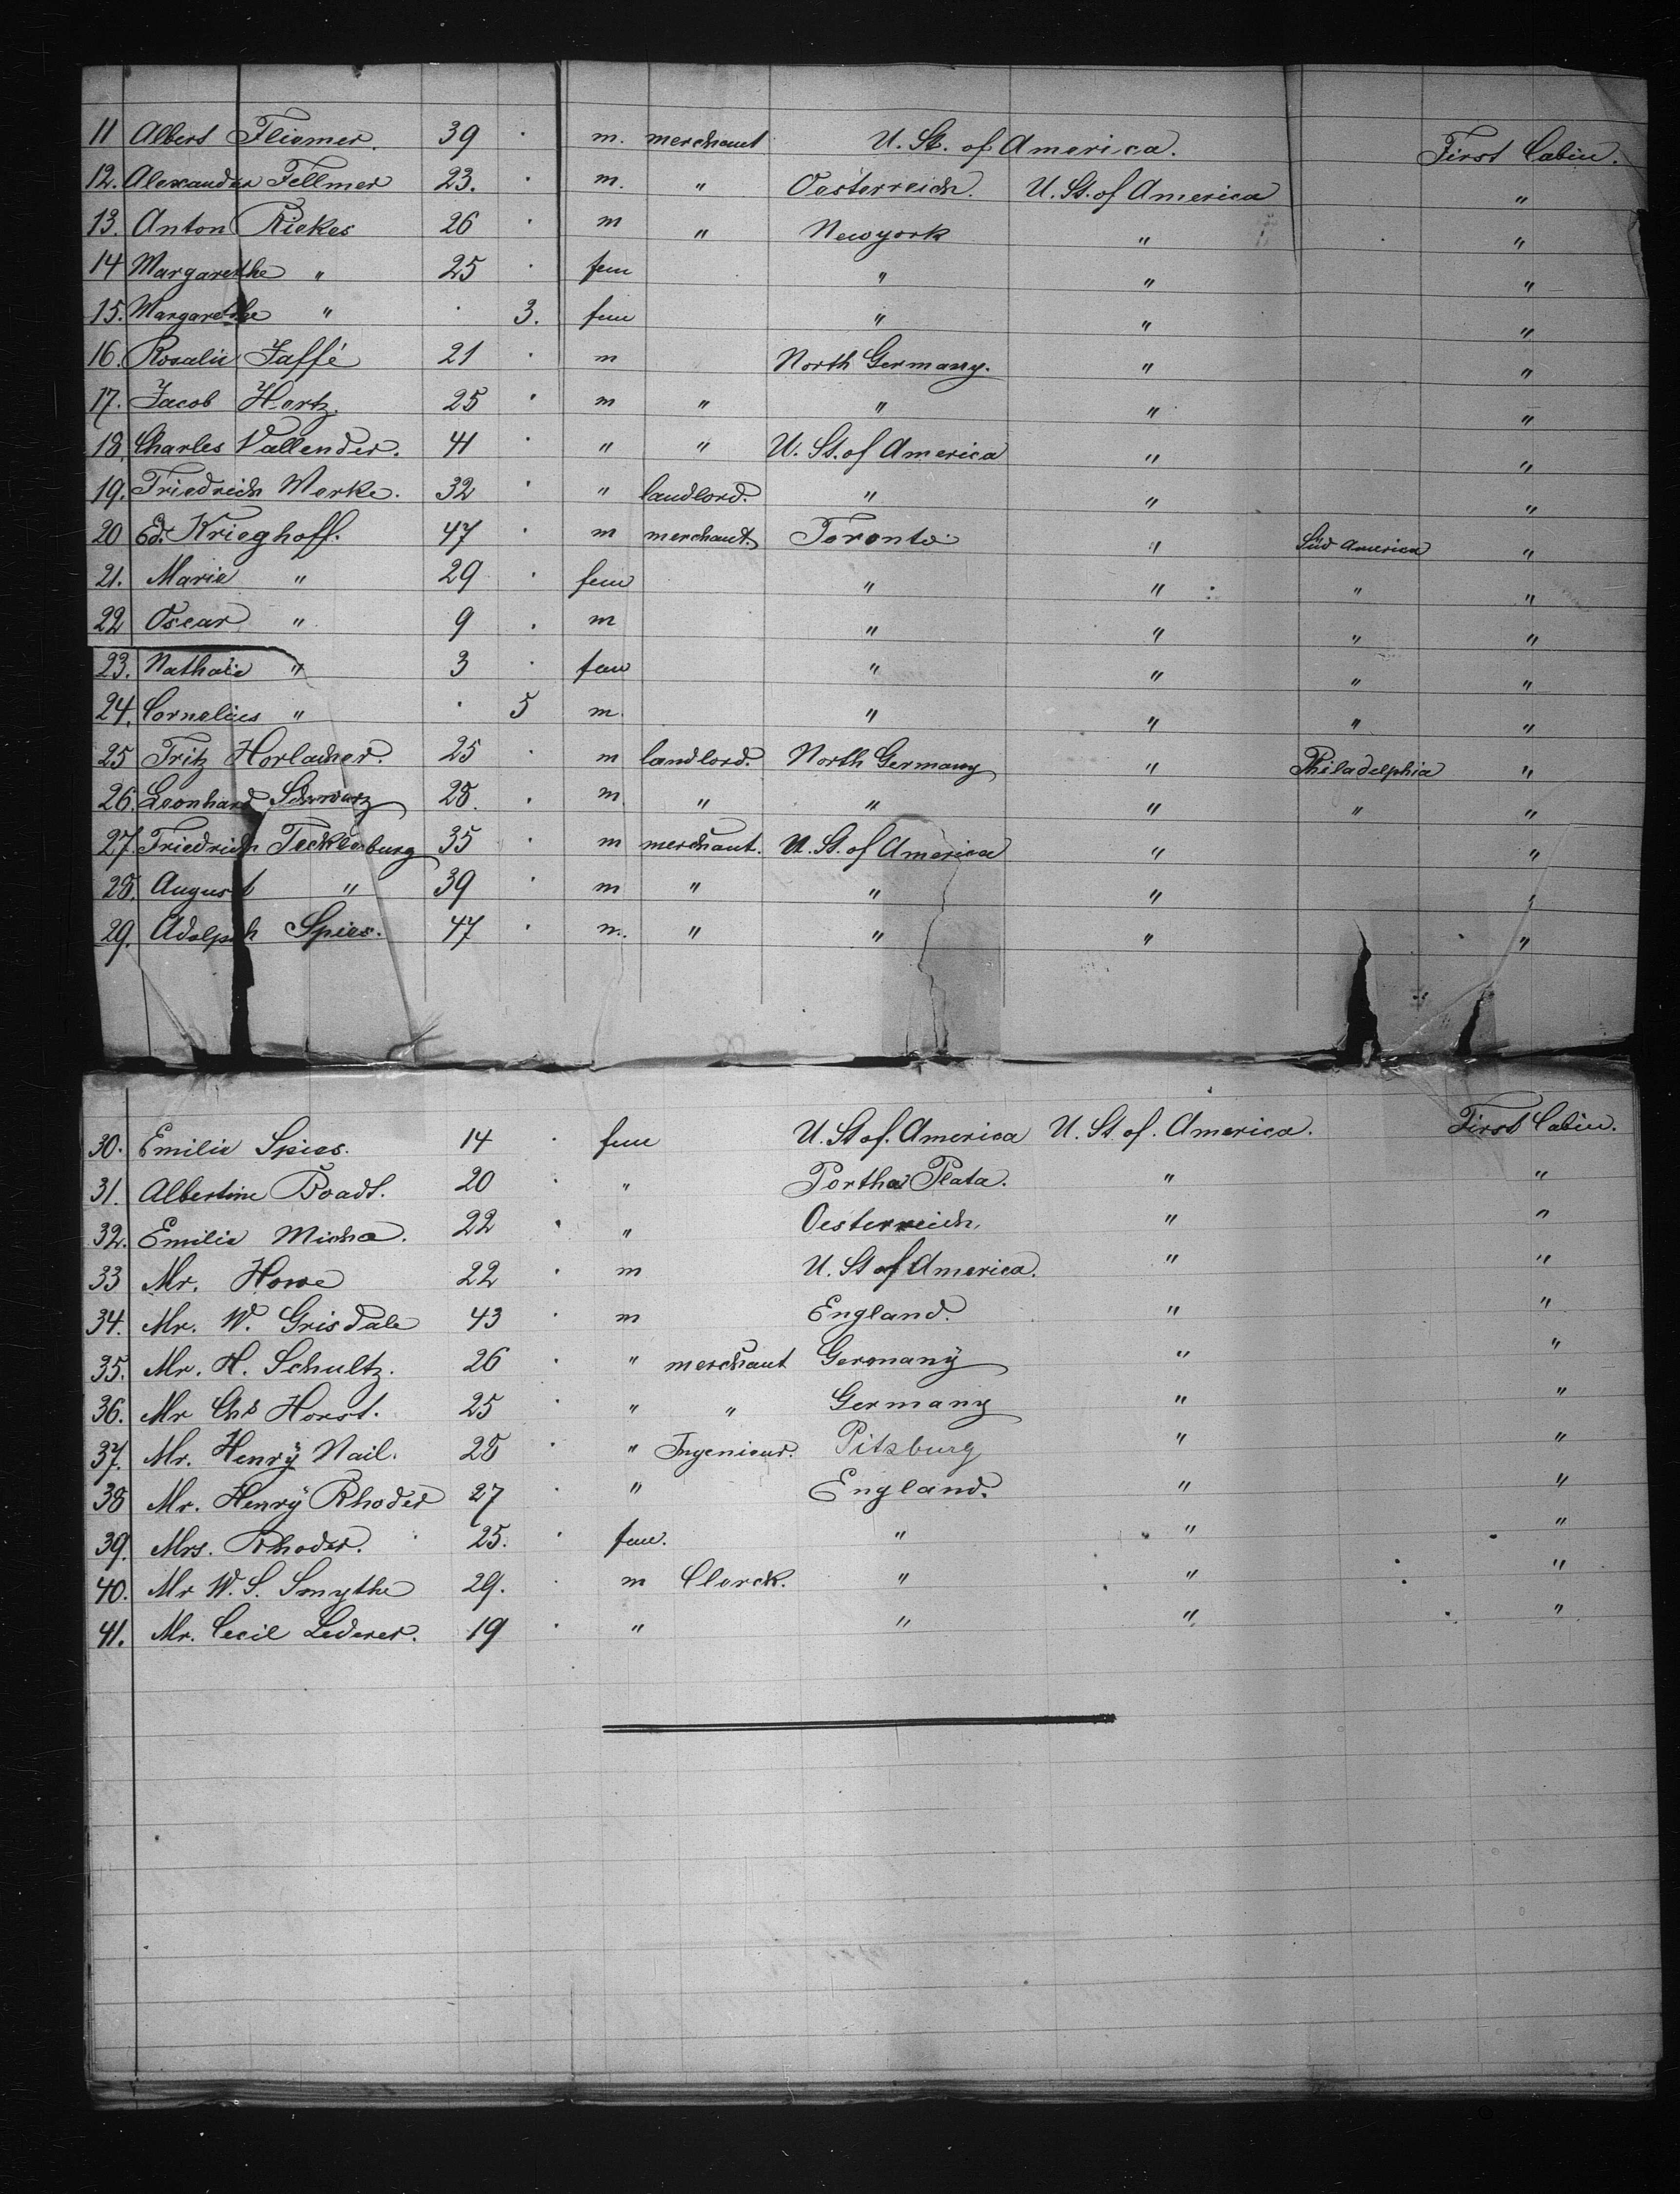 11 Albert Fliemer. 39 · m. merchant U. St. of America. First Cabin.
12. Alexander Fellmer 23. · m. " Oesterreich. U. St. of America "
13. Anton Riekes 26 · m " Newyork " "
14 Margarethe " 25 · fem " " "
15. Margarethe " · 3. fem " " "
16. Rosalie Jaffé 21 · m North Germany. " "
17. Jacob Hertz. 25 · m " " " "
18. Charles Vallender. 41 · " " U. St. of America " "
19. Friedrich Merke. 32 · " landlord. " " "
20 Ed. Krieghoff. 47 · m merchant. Toronto " Süd America "
21. Marie " 29 · fem " " " "
22 Oscar " 9 . m " " " "
23. Nathalie " 3 · fem " " " "
24. Cornelius " · 5 m. " " " "
25 Fritz Horlacher. 25 · m landlord. North Germany " Philadelphia "
26. Leonhard Schwarz 28. . m. " " " " "
27. Friedrich Tecklenburg 35 · m merchant. U. St. of America " "
28. August " 39 · m " " " "
29. Adolph Spies. 47 · m. " " " "
30. Emilie Spies. 14 · fem U. St of. America U. St. of. America. First Cabin.
31. Albertine Boadt. 20 · " Portha Plata. " "
32. Emilie Micha. 22 · " Oesterreich. " "
33 Mr. Howe 22 · m U. St of America. " "
34. Mr. W. Grisdale 43 · m England. " "
35. Mr. H. Schultz. 26 · " merchant Germanÿ " "
36. Mr Chs Horst. 25 · " " Germany " "
37. Mr. Henrÿ Nail. 28 · " Ingenieur. Pitsburg " "
38 Mr. Henrÿ Rhoder 27 · " England. " "
39. Mrs. Rhoder. 25. · fem. " " "
40. Mr W. S. Smythe 29. · m Clerck. " " "
41. Mr. Cecil Lederer. 19 · " " " "